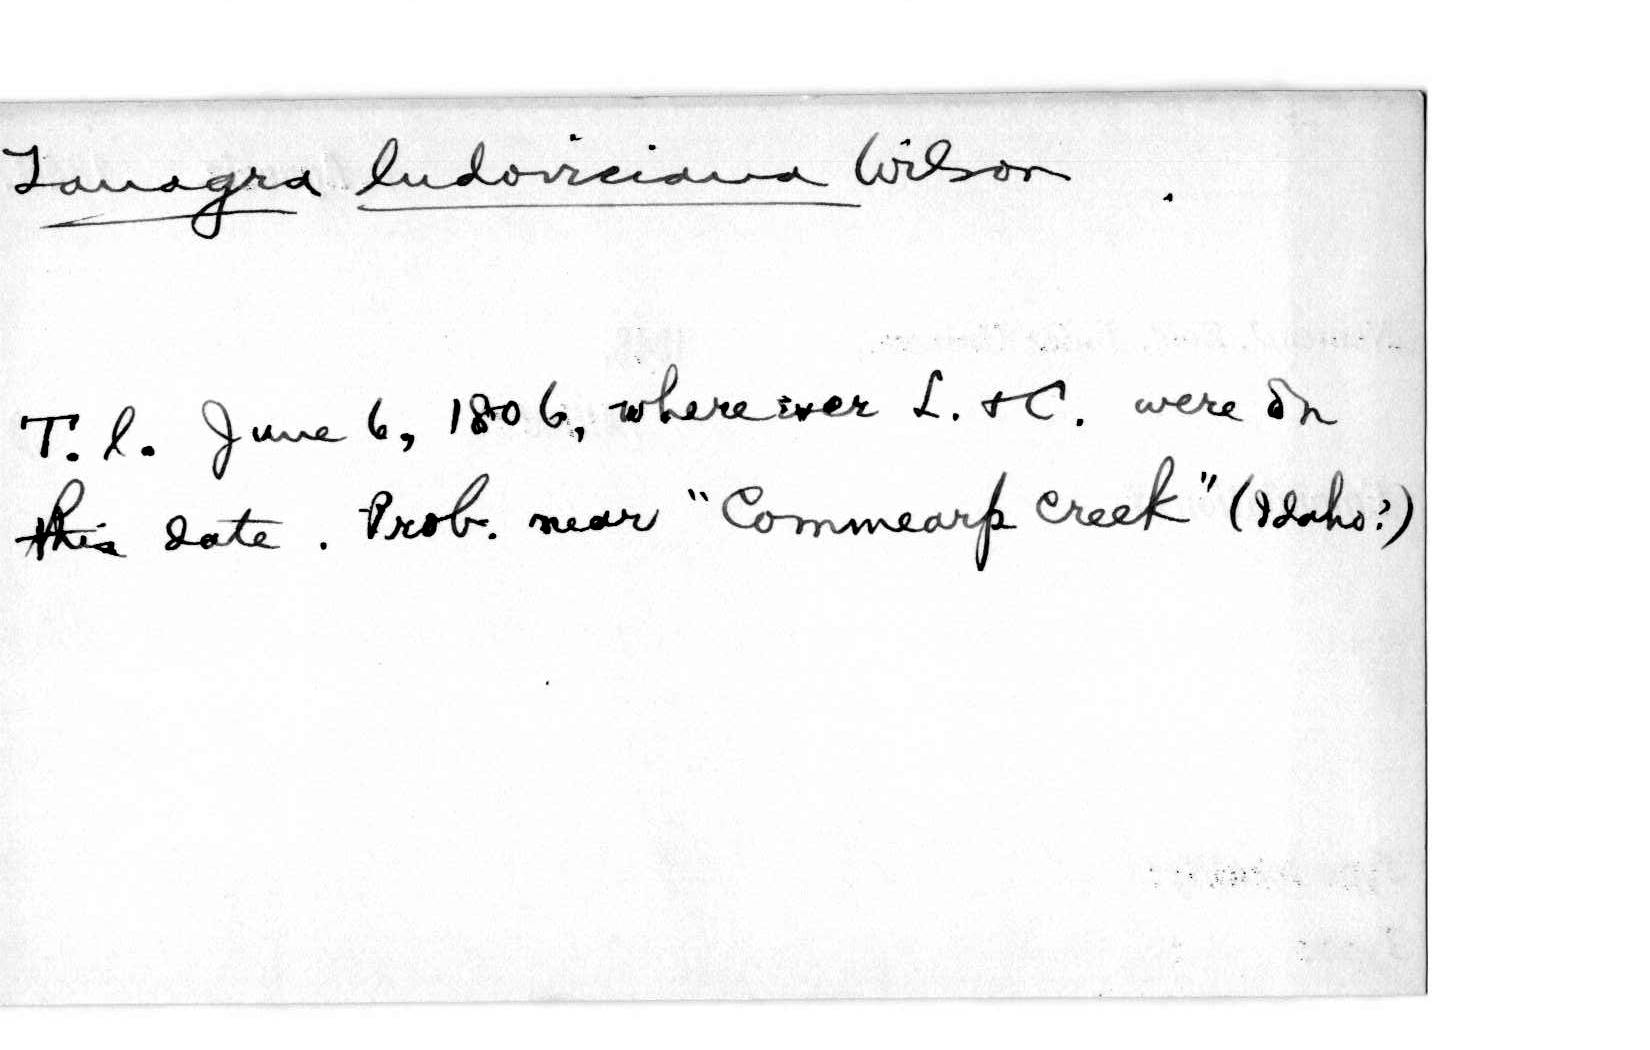 Tanagra ludoviciana Wilson .
T. l. June 6, 1806, wherever L. + C. were on
this date. Prob. near "Commearp Creek" (Idaho?)